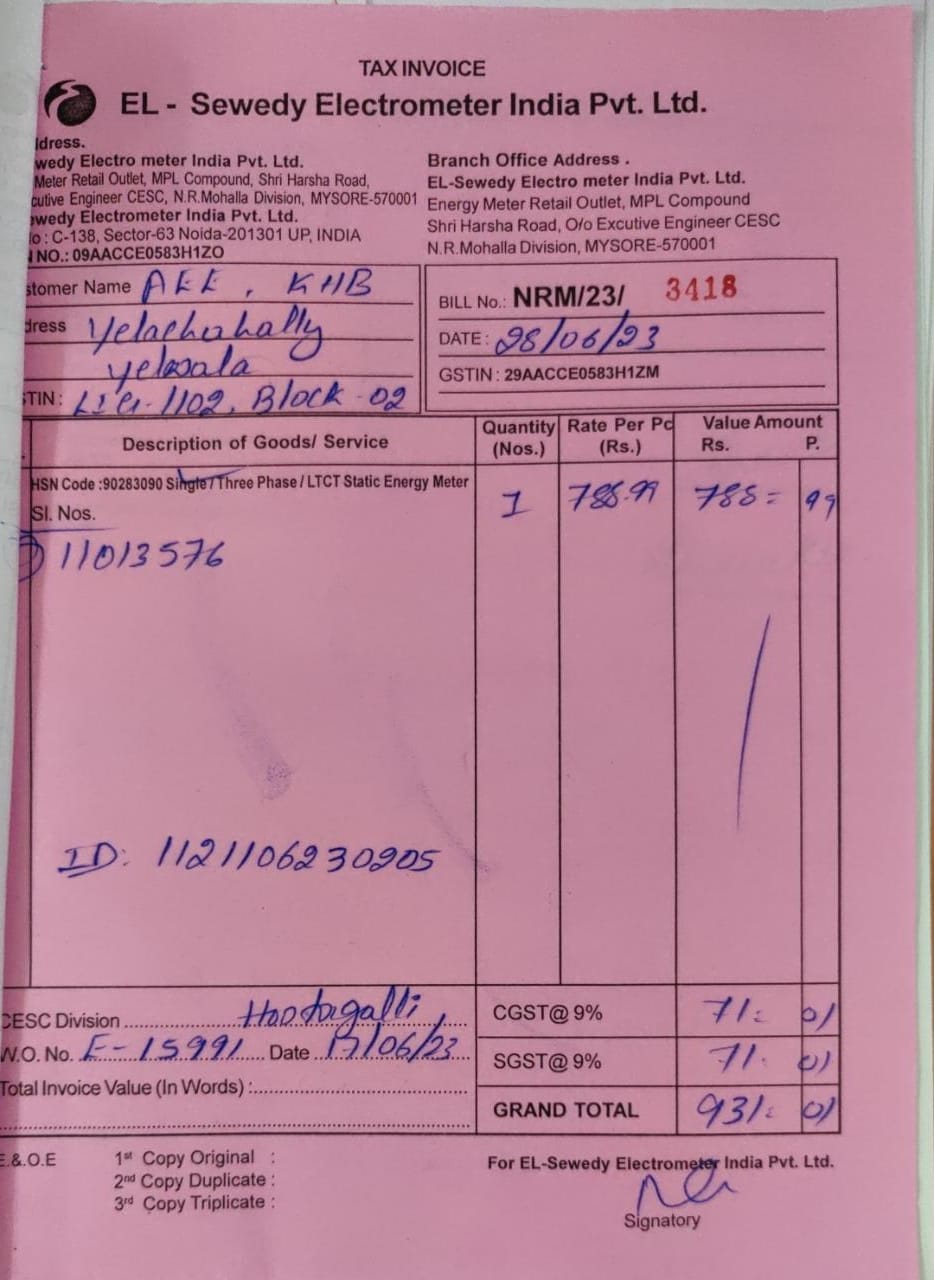 TAX INVOICE
EL - Sewedy Electrometer India Pvt. Ltd.
ldress.
wedy Electro meter India Pvt. Ltd.
Meter Retail Outlet, MPL Compound, Shri Harsha Road,
cutive Engineer CESC, N.R.Mohalla Division, MYSORE-570001
ewedy Electrometer India Pvt. Ltd.
o : C-138, Sector-63 Noida-201301 UP, INDIA
NO.: 09AACCE0583H1ZO
Branch Office Address .
EL-Sewedy Electro meter India Pvt. Ltd.
Energy Meter Retail Outlet, MPL Compound
Shri Harsha Road, O/o Excutive Engineer CESC
N.R.Mohalla Division, MYSORE-570001
stomer Name AEE, KHB
dress Yelachahally
yelwala
TIN : LIG-1102, Block-02
BILL No.: NRM/23/ 3418
DATE : 28/06/23
GSTIN : 29AACCE0583H1ZM
Description of Goods/ Service
Quantity (Nos.)
Rate Per Pc (Rs.)
Value Amount
Rs. P.
HSN Code :90283090 Single / Three Phase / LTCT Static Energy Meter
1 788.99 788= 99
Sl. Nos.
11013576
ID: 1121106230205
CESC Division Hootagalli
W.O. No. E-15991 Date 17/06/23
Total Invoice Value (In Words) :
CGST@ 9% 71= 01
SGST@ 9% 71. 01
GRAND TOTAL 931= 01
E.&.O.E
1st Copy Original :
2nd Copy Duplicate :
3rd Copy Triplicate :
For EL-Sewedy Electrometer India Pvt. Ltd.
Signatory